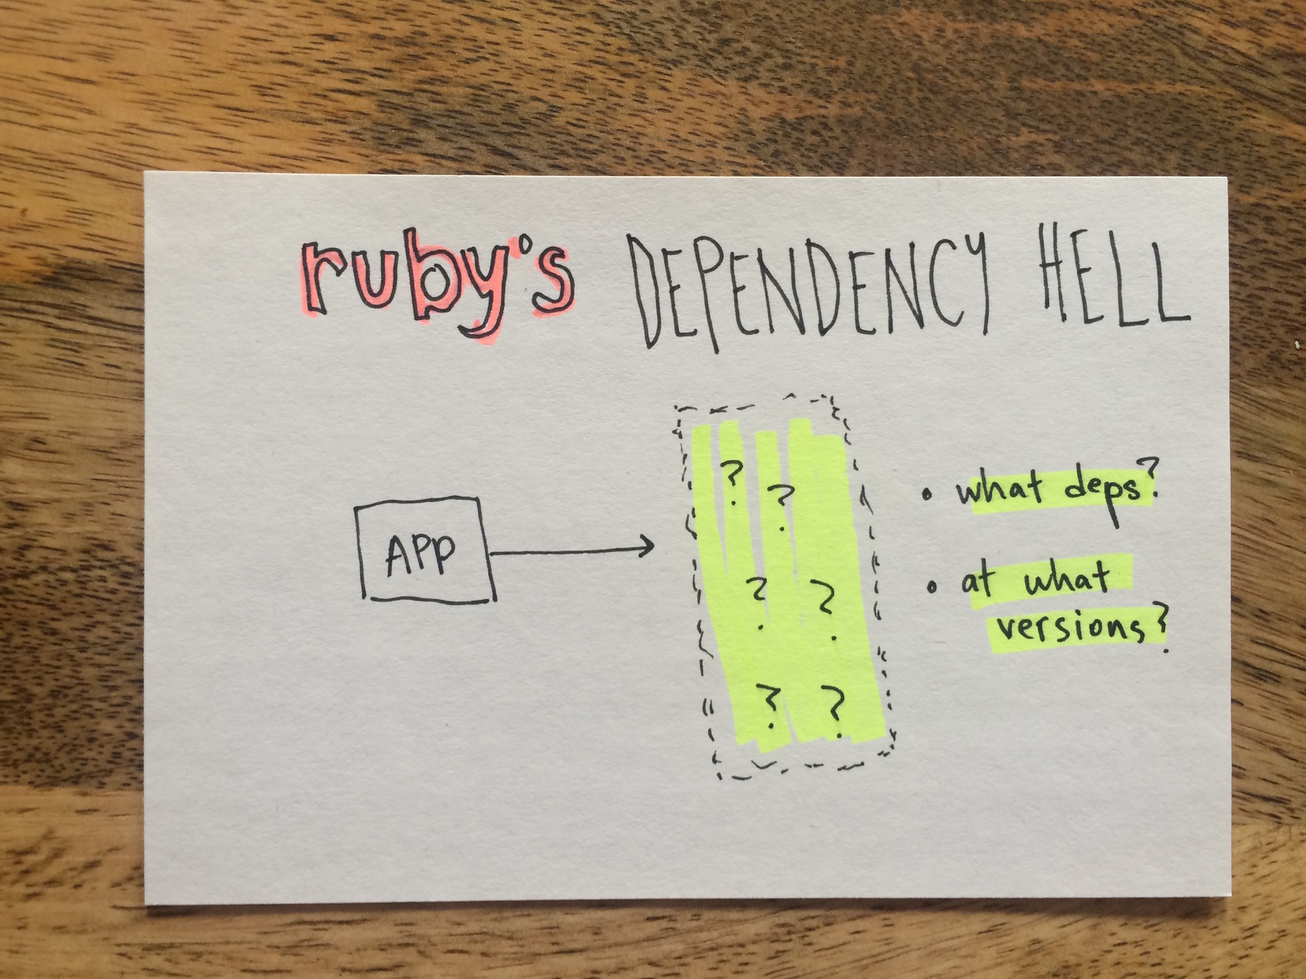 ruby's DEPENDENCY HELL
APP
? ?
? ?
? ?
• what deps?
• at what
versions?